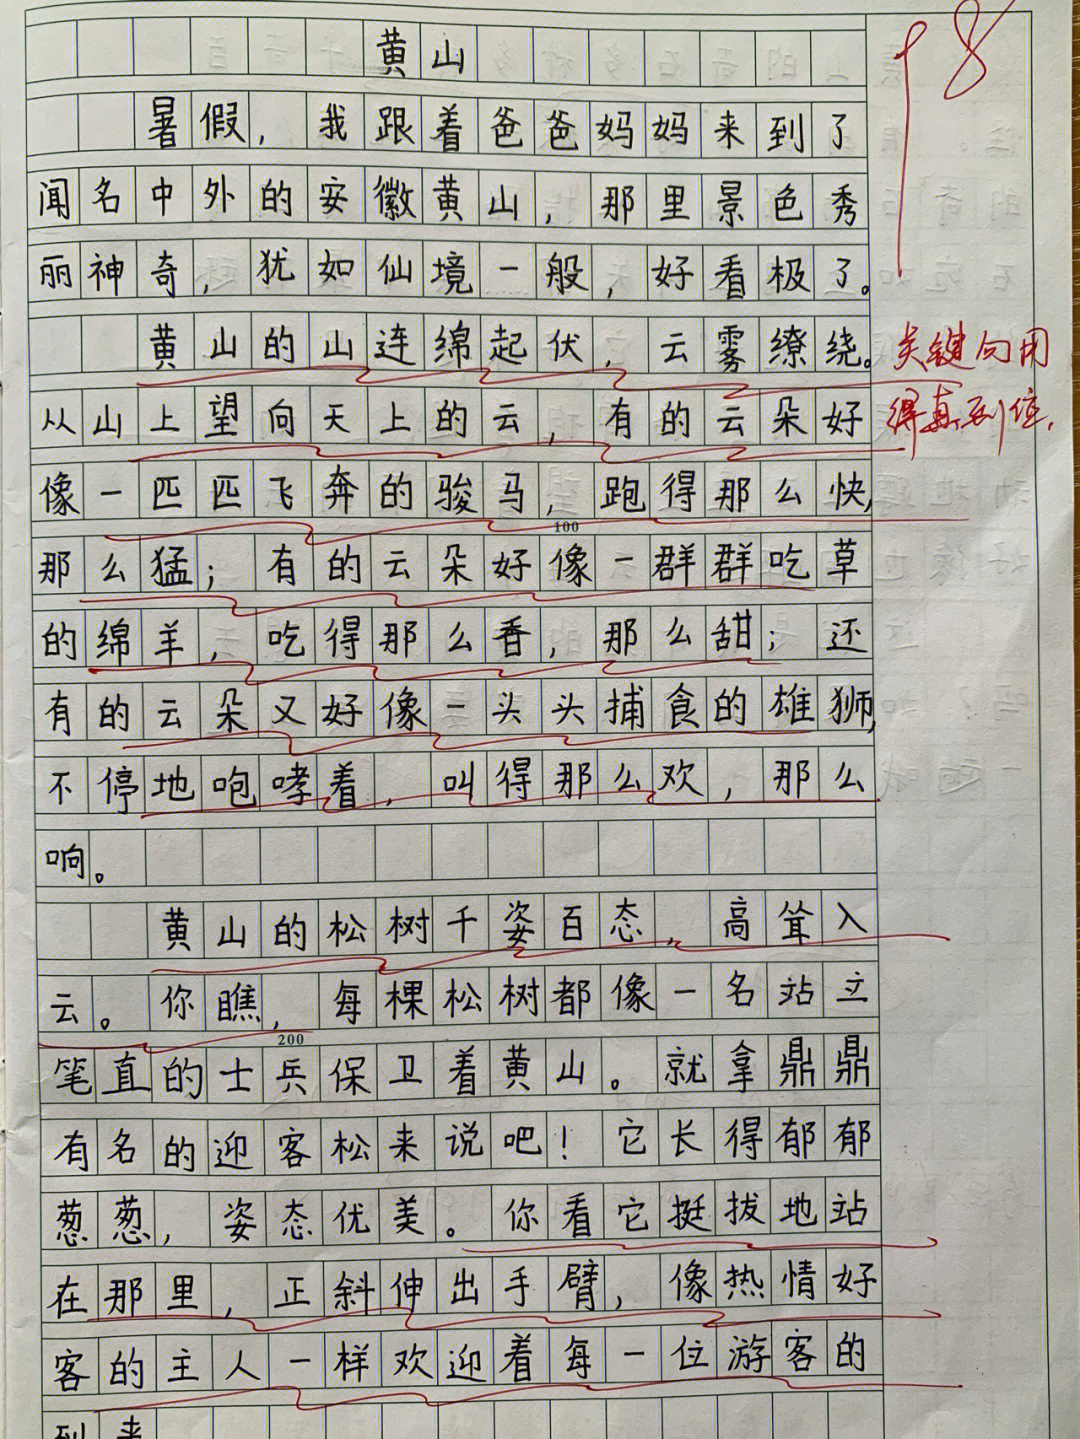 黄山
98
暑假，我跟着爸爸妈妈来到了
闻名中外的安徽黄山，那里景色秀
丽神奇，犹如仙境一般，好看极了。
黄山的山连绵起伏，云雾缭绕。
关键句用
从山上望向天上的云，有的云朵好
得真到位，
像一匹匹飞奔的骏马，跑得那么快，
100
那么猛；有的云朵好像一群群吃草
的绵羊，吃得那么香，那么甜；还
有的云朵又好像一头头捕食的雄狮，
不停地咆哮着，叫得那么欢，那么
响。
黄山的松树千姿百态，高耸入
云。你瞧，每棵松树都像一名站立
200
笔直的士兵保卫着黄山。就拿鼎鼎
有名的迎客松来说吧！它长得郁郁
葱葱，姿态优美。你看它挺拔地站
在那里，正斜伸出手臂，像热情好
客的主人一样欢迎着每一位游客的
到来